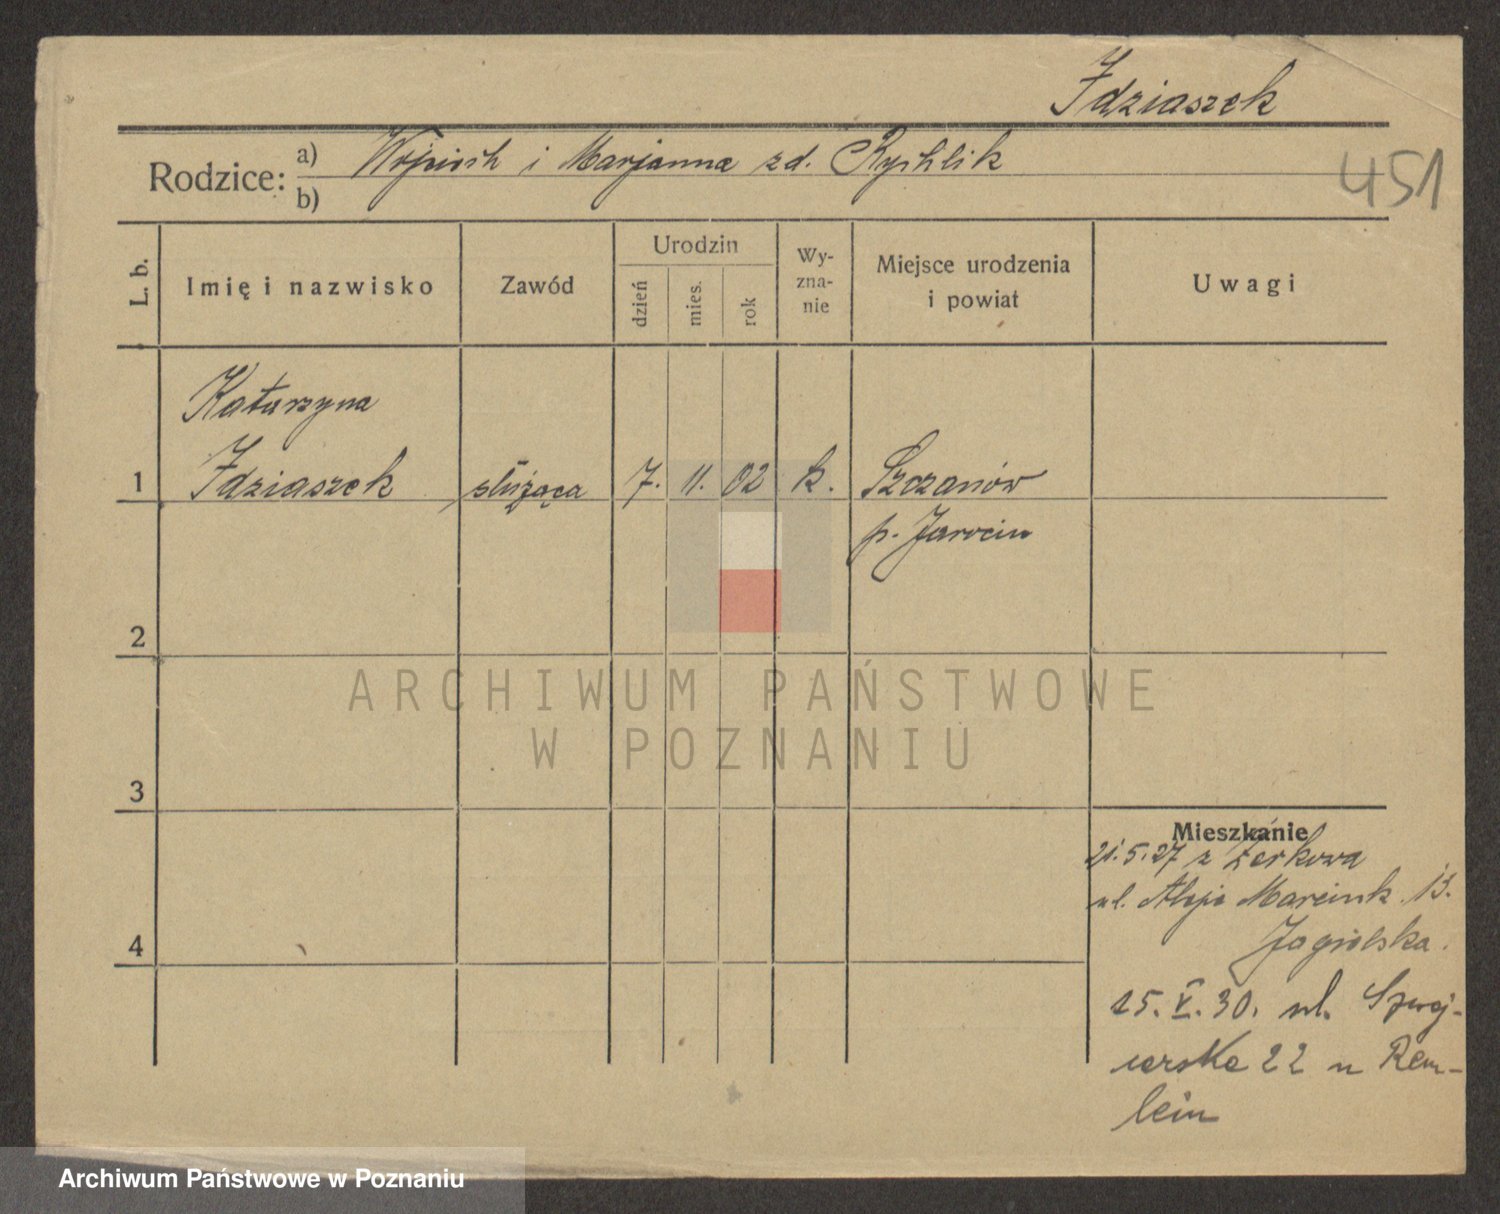 Idziaszek
Rodzice: a) Wojciech i Marjanna zd. Rychlik
b)
451
L. b.
Imię i nazwisko
Zawód
Urodzin
dzień
mies.
rok
Wy-
zna-
nie
Miejsce urodzenia
i powiat
Uwagi
Katarzyna
1 Idziaszek służąca 7. 11. 02 k. Szczonów
p. Jarocin
2
ARCHIWUM PAŃSTWOWE
W POZNANIU
3
4
Mieszkanie
21.5.27 z Żerkowa
ul. Aleje Marcink. 13.
Jagielska.
15. V. 30. ul. Szwaj-
carska 22 u Rem-
lein
Archiwum Państwowe w Poznaniu